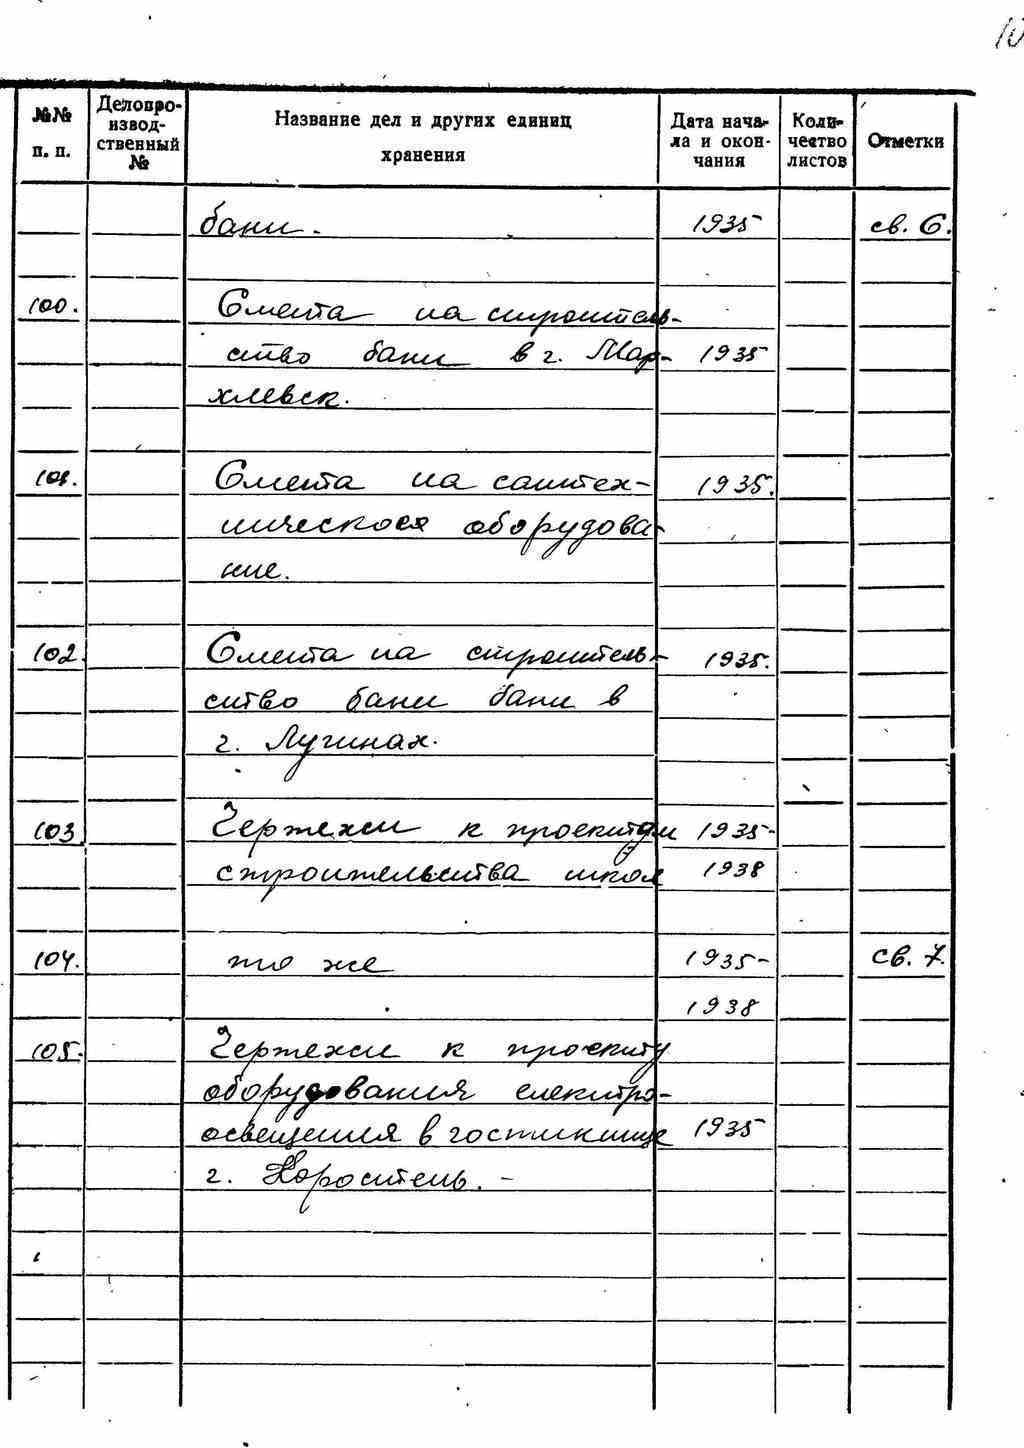 10
№№ п. п. Деловро- извод- ственный № Название дел и других единиц хранения Дата нача- ла и окон- чания Коли- чество листов Отметки
бани. 1935 св. 6.
100. Смета на строитель-
ство бани в г. Мар- 1935
хлевск.
101. Смета на сантех- 1935.
ническоея оборудова-
ние.
102. Смета на строитель- 1935.
ство бани бани в
г. Лугинах.
103. Чертежи к проектам 1935-
строительства школ 1938
104. то же 1935- св. 7.
1938
105. Чертежи к проекту
оборудования електро-
освещения в гостинице 1935
г. Коростель. -